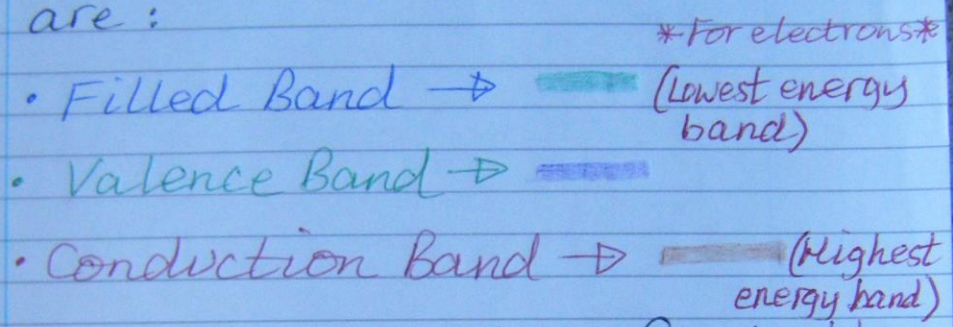 are :
*For electrons*
• Filled Band → (Lowest energy
band)
• Valence Band →
• Conduction Band → (Highest
energy band)